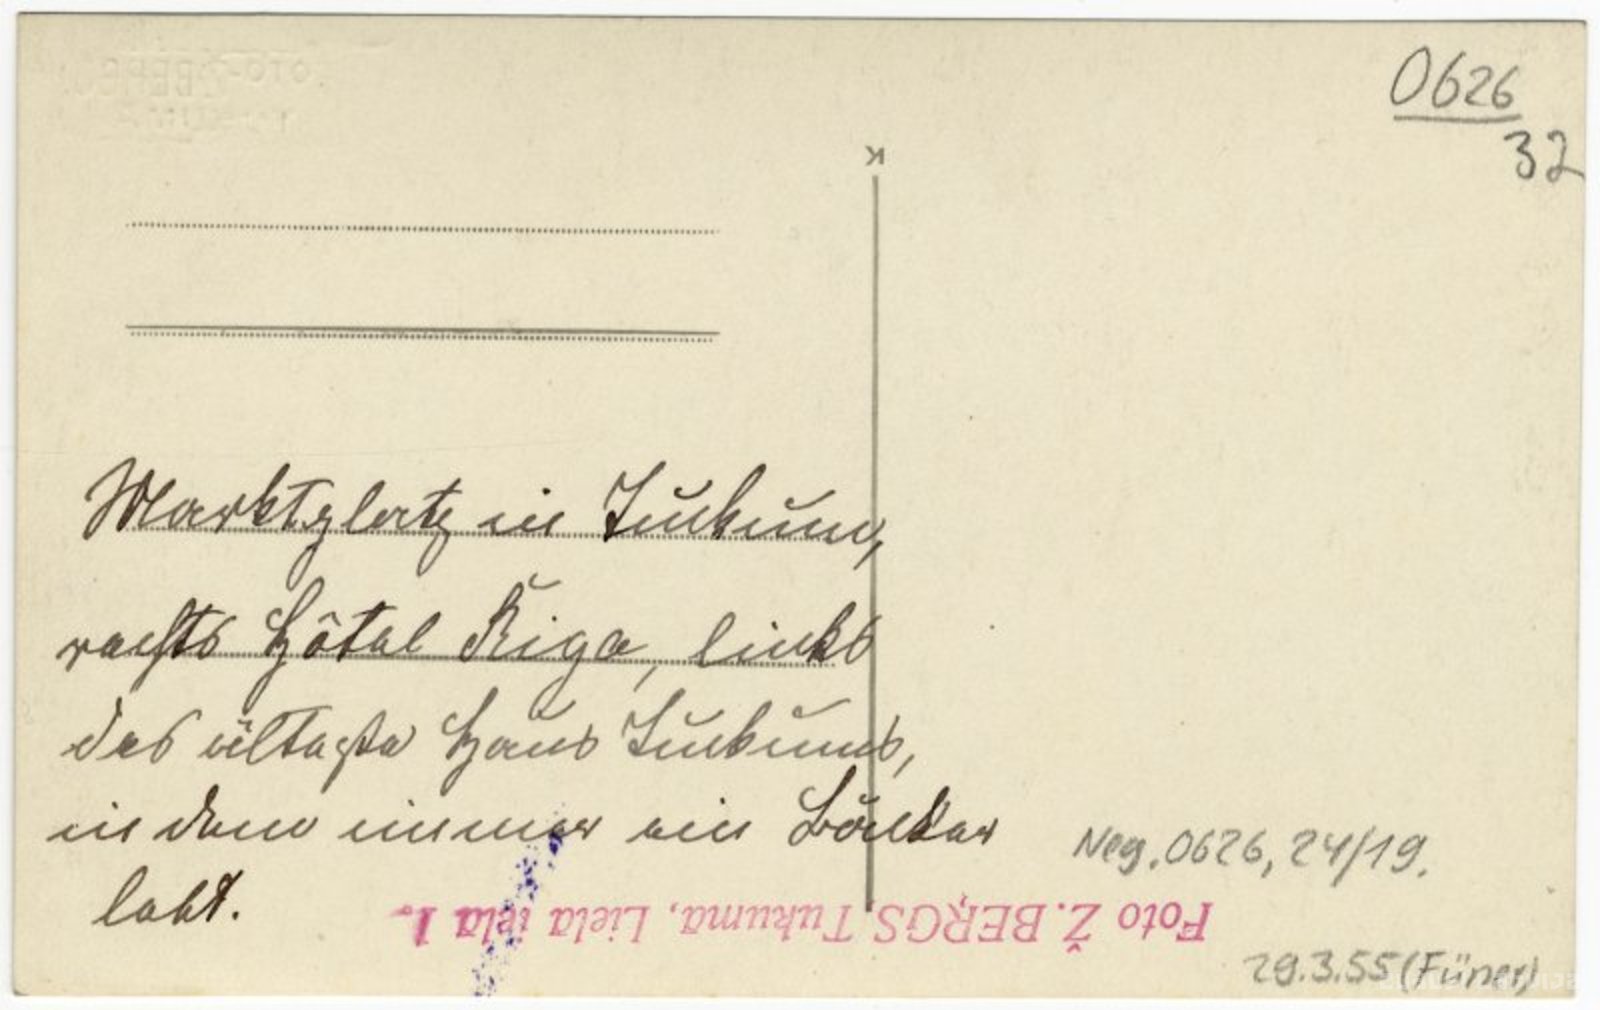 0626
32
K
Marktplatz in Tuckum,
rechts Hôtel Riga, links
das älteste Haus Tuckums,
in dem immer ein Bäcker
lebt.
Neg. 0626, 24/19.
Foto Ž. BERGS Tukumā, Lielā ielā 1.
29.3.55 (Füner)